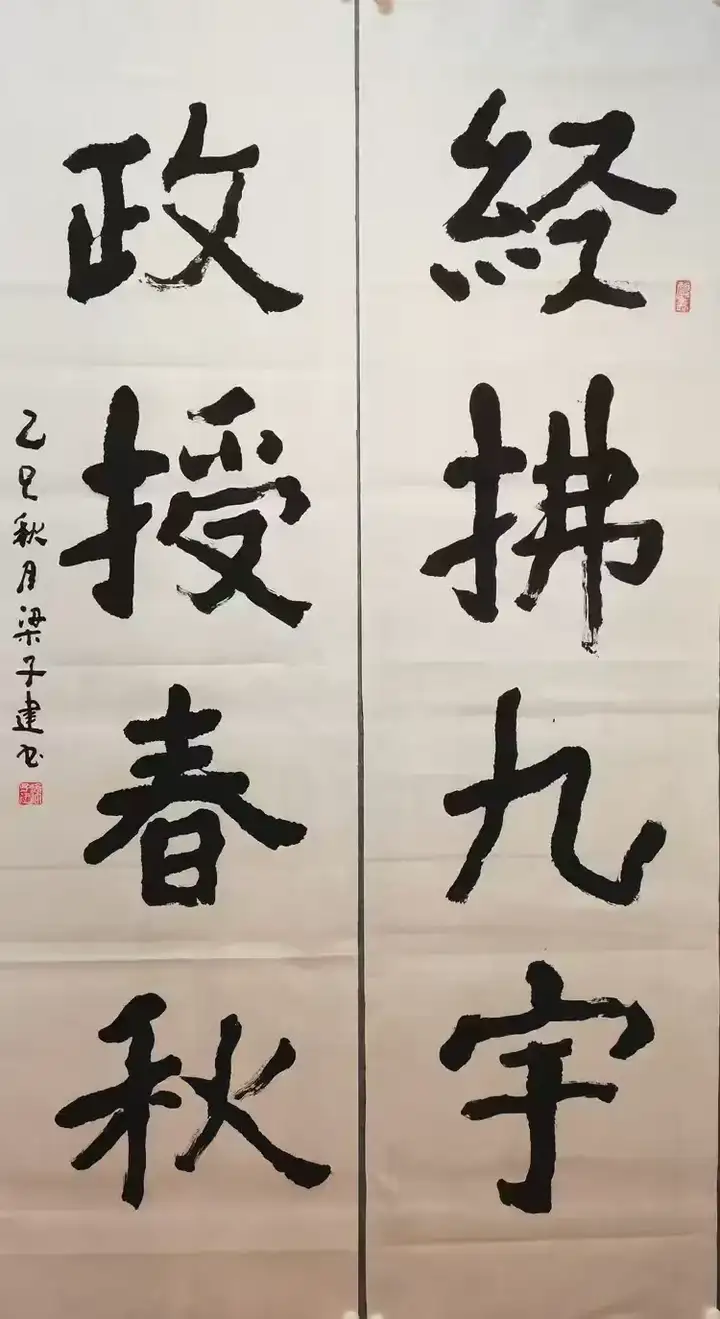 經拂九宇
政授春秋
乙巳秋月梁子建书